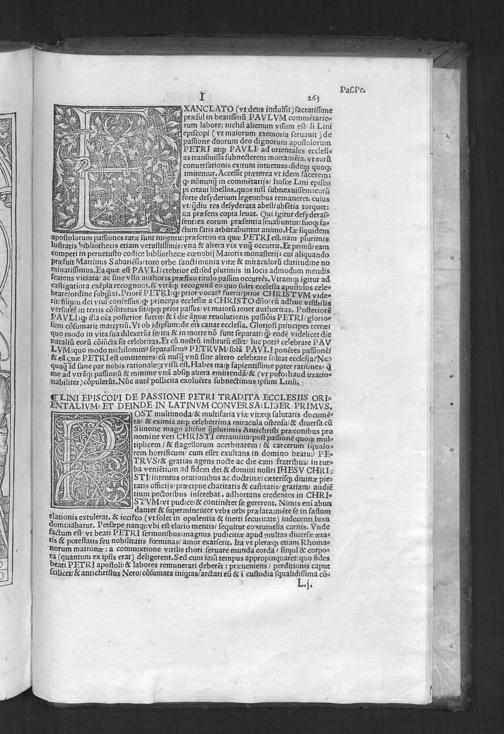 Paſ.Pe.
I 263
EXANCLATO (vt deus indulſit) ſacratiſſime
præſul in beatiſſimū PAVLVM commētatio-
rum labore: nichil alienum viſum eſt: ſi Lini
epiſcopi (vt maiorum memoria ſeruauit) de
paſſione duorum deo dignorum apoſtolorum
PETRI atq; PAVLI: ad orientales eccleſi-
as tranſmiſſa ſubnecterem monumēta. vt eorū
conuerſationis exitum intuentes: fidem quoq;
imitentur. Acceſſit præterea vt idem facerem:
q nōnunq in commētarijs: hoſce Lini epiſco
pi citaui libellos. quos niſi ſubnexuiſſem: eorū
forte deſyderium legentibus remaneret. cuius
vt: qdiu res deſyderata abeſt: abſētia torquet: i-
ta præſens copia leuat. Qui igitur deſyderaſ-
ſent: ex eorum præſentia leuabuntur: ſuoq; fa-
ctum ſatis arbitrabuntur animo. Hæ ſiquidem
apoſtolorum paſſiones raræ ſunt inuentu: præſertim ea quæ PETRI eſt. nam plurimis
luſtratis bibliothecis etiam vetuſtiſſimis: vna & altera vix vnq occurrit. Et primū eam
comperi in peruetuſto codice bibliothecæ cœnobij Maioris monaſterij: cui aliquando
præfuit Martinus Sabatiēſis: toto orbe ſanctimonia vitæ & miraculorū claritudine no
minatiſſimus. Ea quæ eſt PAVLI: crebrior eſt: ſed plurimis in locis admodum mendis
ſcatens viciata: ac ſine vllo auctoris præfixo titulo paſſim occurrit. Vtramq; igitur ad
caſtigatiora exēpla recognoui. & vtráq; recognitā eo quo ſolet eccleſia apoſtolos cele-
brare: ordine ſubijxi. Priore PETRI: q prior vocatꝰ fuerit: prior CHRISTVM vide-
rit: filiumq; dei viui confeſſus. q princeps eccleſiæ a CHRISTO dn̄orū adhuc viſibilis
verſaret̄ in terris cōſtitutus ſit: utq; prior paſſus: vt maiorū tenet auctoritas. Poſteriorē
PAVLI: q illa oīa poſterior fuerit: & ī die quæ reuolutionis paſſiōis PETRI: glorio-
ſum cōſummarit martyriū. Vt ob id ipſum: de eis canat eccleſia. Glorioſi principes terræ:
quo modo in vita ſua dilexerūt ſe: ita & in morte nō ſunt ſeparati: q eodē videlicet die
natalitiū eorū cōiūcta ſit celebritas. Et cū noſtri inſtituti eſſet: huc potiꝰ celebrare PAV
LVM: quo modo nichilominꝰ ſeparaſſemꝰ PETRVM: ſolā PAVLI ponētes paſſionē:
& eā quæ PETRI eſt omittentes: cū nuſq vnū ſine altero celebrare ſoleat eccleſia: Ne-
quaq id ſane par nobis rationaleq; viſū eſt. Habes itaq; ſapientiſſime pater rationes: q
me ad vtráq; paſſionū & minime vnā abſq; altera emittendā: & (vt puto: haud irratio-
nabiliter) cōpulerūt. Nūc autē pollicita exoluētes ſubnectimus ipſum Linū.
¶ LINI EPISCOPI DE PASSIONE PETRI TRADITA ECCLESIIS ORI-
ENTALIVM: ET DEINDE IN LATINVM CONVERSA: LIBER PRIMVS.
POST multimoda: & multifaria viæ vitæq; ſalutaris documē-
ta: & eximia atq; celeberrima miracula oſtenſa: & diuerſa cū
Simone mago aliſue q plurimis Antichriſti præconibus pro
nomine veri CHRISTI certamina: poſt paſſionē quoq; mul-
tiplicem: & flagellorum acerbitatem: & carcerum ſqualo-
rem horrificum: cum eſſet exultans in domino beatꝰ PE-
TRVS: & gratias agens nocte ac die cum fratribus: in tur-
ba venientium ad fidem dei & domini noſtri IHESV CHRI-
STI: intentus orationibus ac doctrinæ: cæteriſq; diuinæ pie-
tatis officijs: præcipue charitatis & caſtitatis: gratiam: audiē
tium pectoribus inſerebat. adhortans credentes in CHRI-
STVM: vt pudice: & continēter ſe gererent. Nimis eni abun
danter & ſupereminenter vrbs orbi prælata: metē ſe in faſtum
elationis extulerat. & inceſto (vt ſolet in opulentia & inerti ſecuritate) indecenti luxu
domīnabatur. Perſæpe nanq; vbi eſt elatio mentis: ſequitur cōtumelia carnis. Vnde
factum eſt: vt beati PETRI ſermonibus: magnus pudicitiæ apud multas diuerſæ æta-
tis & poteſtatis ſeu nobilitatis feminas: amor exarſerit. Ita vt pleræq; etiam Rhoma-
norum matronæ: a commixtione virilis thori ſeruare munda corda: ſimul & corpo-
ra (quantum ex ipſis erat) deligerent. Sed cum iaſtū tempus appropinquaret: quo fides
beati PETRI apoſtoli: & labores remunerari deberēt: præueniens: perditionis caput
ſcilicet: & antichriſtus Nero: cōſumata iniqtas: arctari eū & ī cuſtodia ſqualidiſſima cō-
L.j.